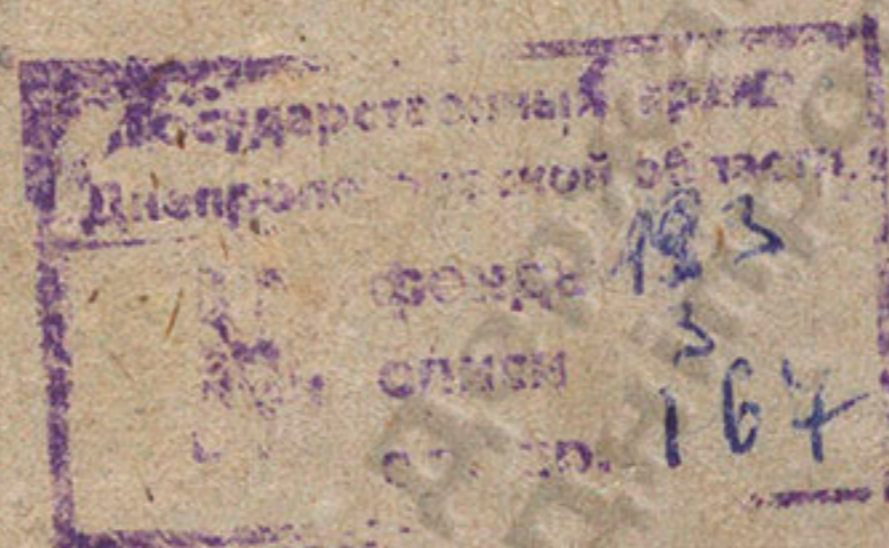 Государственный архив
Днепропетровской области
№ фонда
№ описи 3
ед. хр. 167